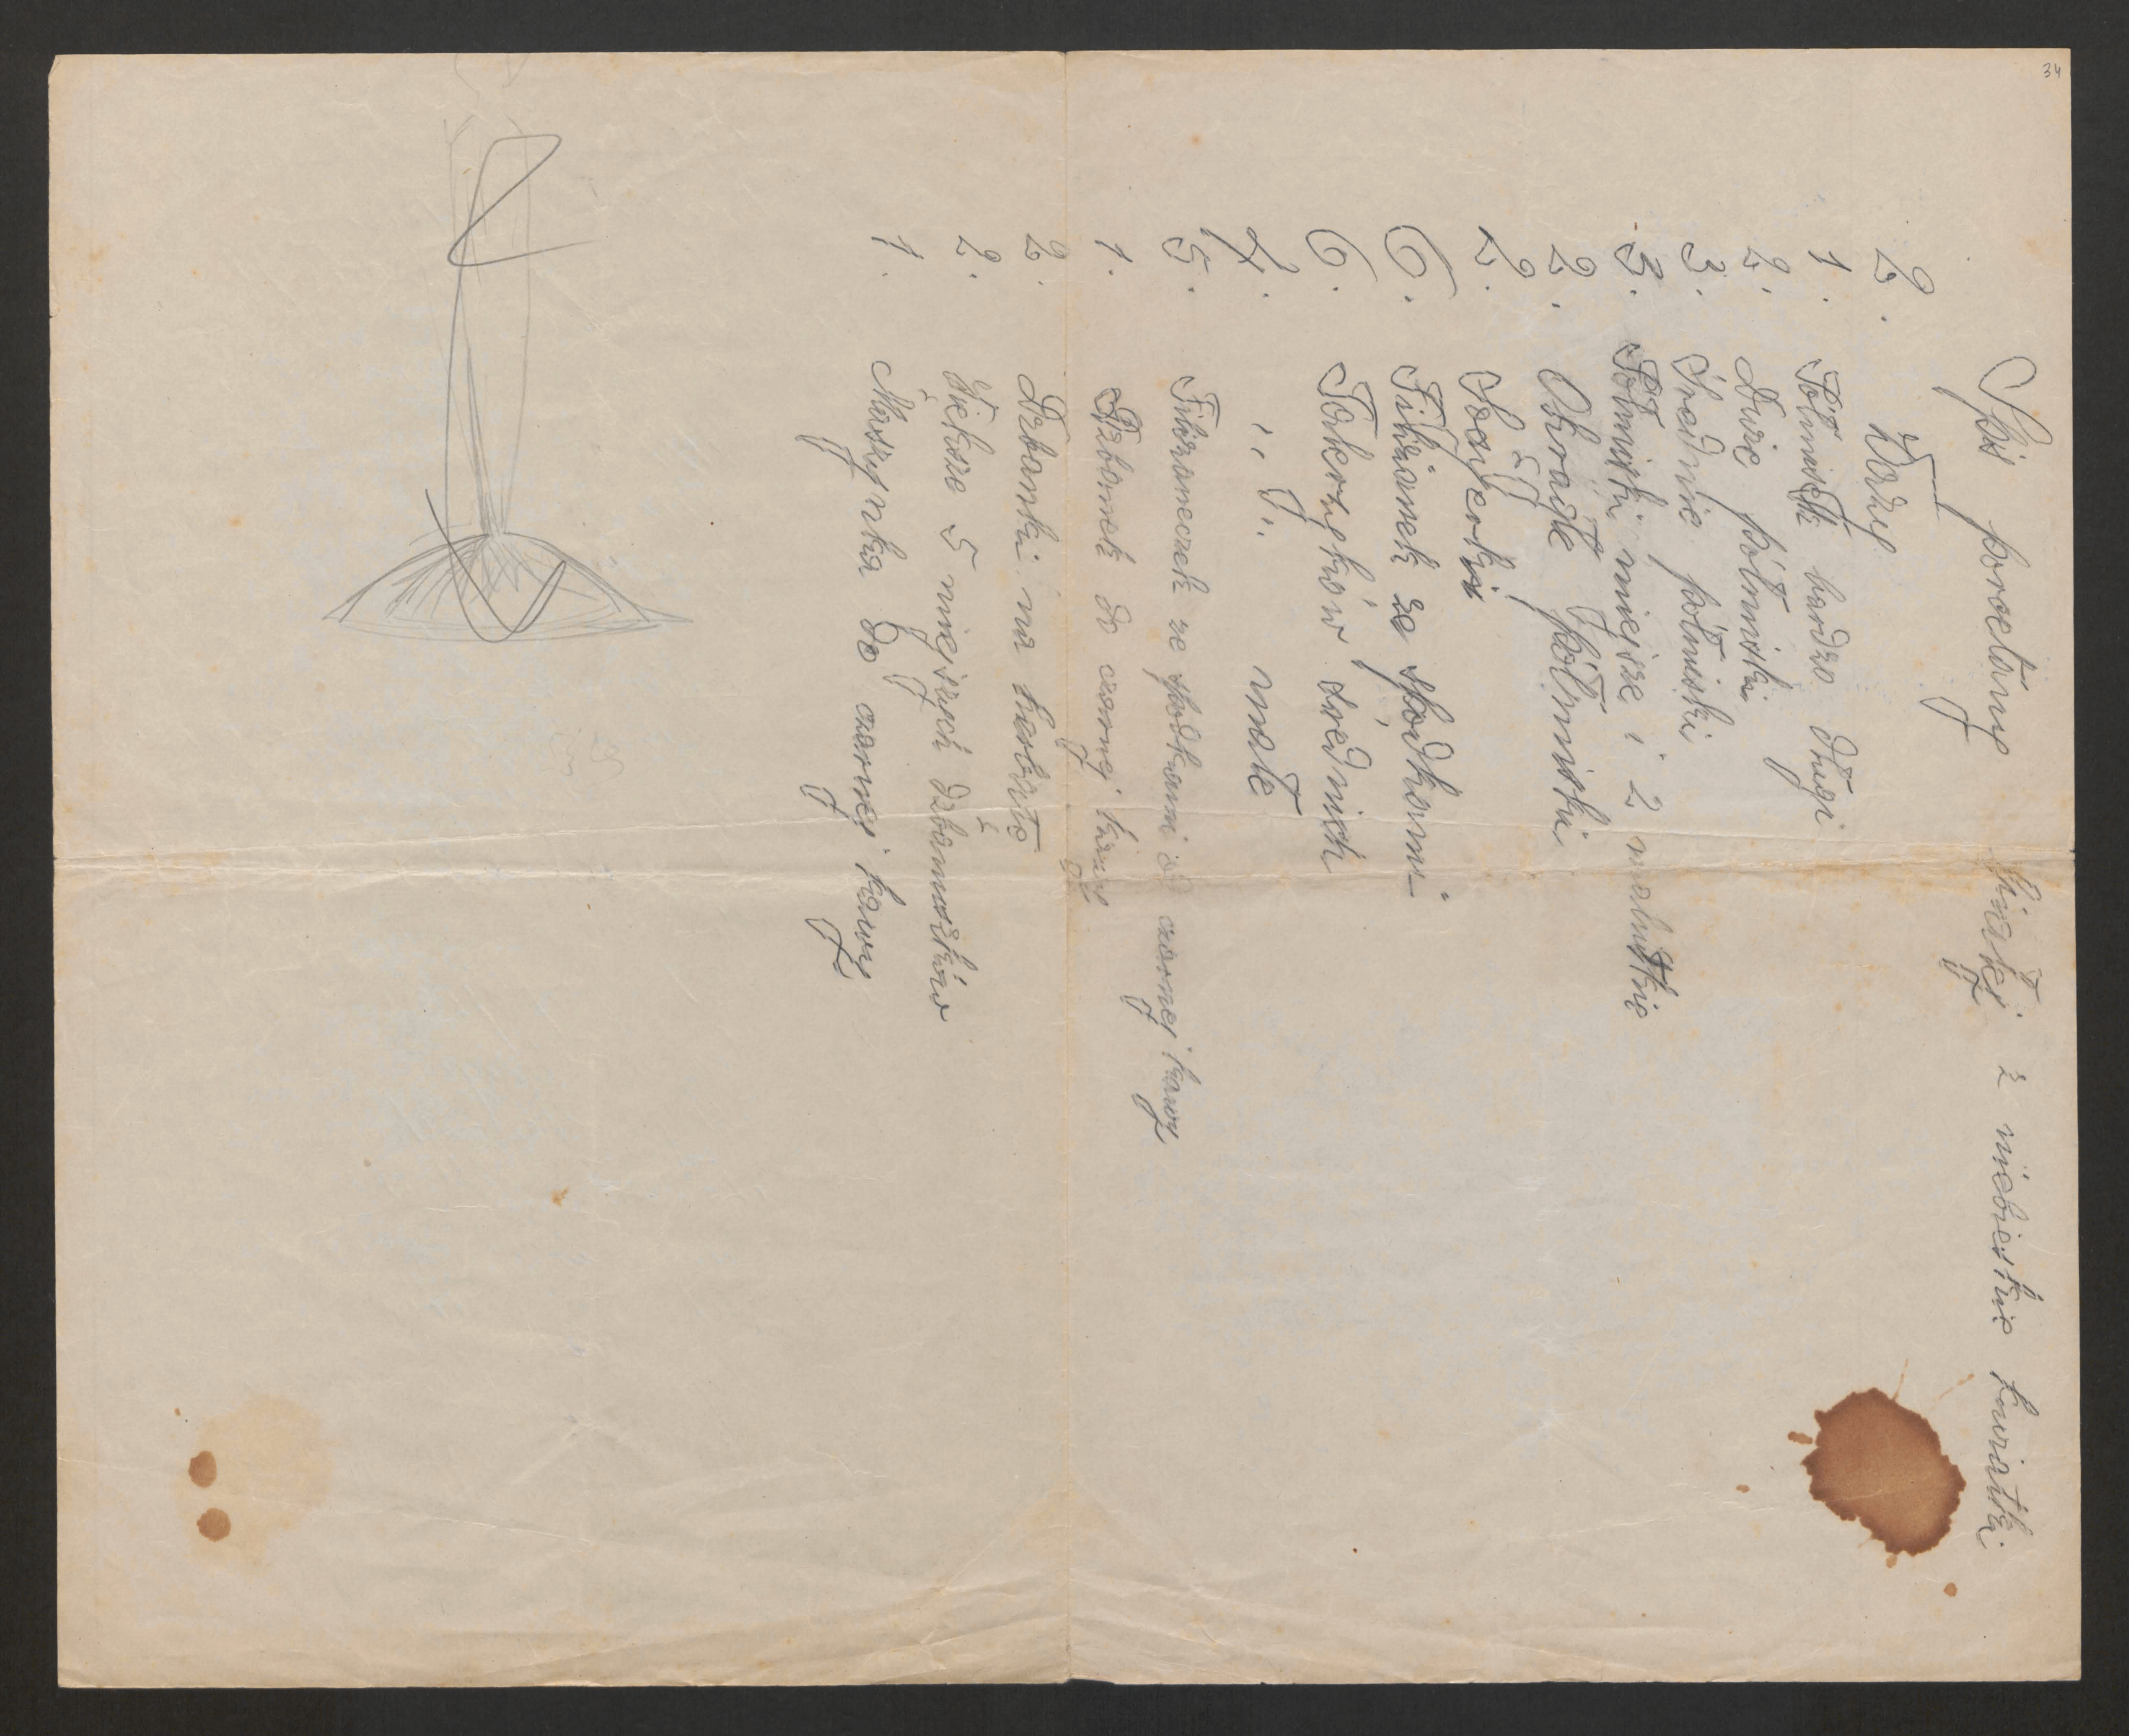 34
Spis porcelany białej z niebieskie kwiatki.
2. Wazy
1. Półmisek bardzo długi
2. Duże półmiski
3. Średnie półmiski
3. Półmiski miejsze i 2 malutkie
2. Okrągłe półmiski
2. Sosyerki
6. Filiżanek ze spodkami
6. Talerzyków średnich
4. " " małe
5. Filiżaneczek ze spodkami do czarnej kawy
1. Dzbanek do czarnej kawy
2. Dzbanki na herbatę
2. Większe 5 miejszych dzbanuszków
1. Maszynka do czarnej kawy